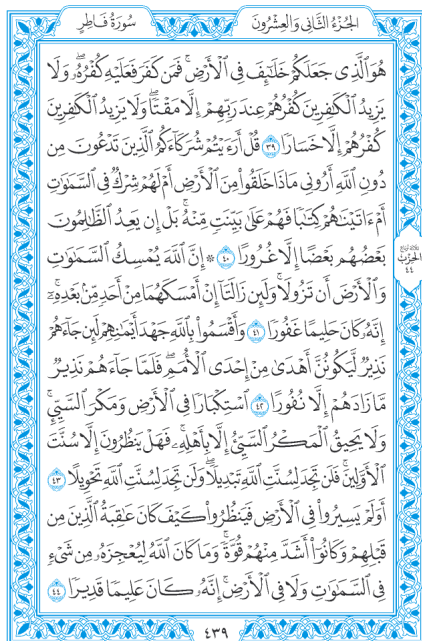 سُورَةُ فَاطِرٍ الجُزْءُ الثَّانِي وَالعِشْرُونَ
هُوَ الَّذِي جَعَلَكُمْ خَلَٰٓئِفَ فِي الْأَرْضِ ۚ فَمَن كَفَرَ فَعَلَيْهِ كُفْرُهُۥ ۖ وَلَا
يَزِيدُ الْكَٰفِرِينَ كُفْرُهُمْ عِندَ رَبِّهِمْ إِلَّا مَقْتًا ۖ وَلَا يَزِيدُ الْكَٰفِرِينَ
كُفْرُهُمْ إِلَّا خَسَارًا ٣٩ قُلْ أَرَءَيْتُمْ شُرَكَآءَكُمُ الَّذِينَ تَدْعُونَ مِن
دُونِ اللَّهِ أَرُونِي مَاذَا خَلَقُوا۟ مِنَ الْأَرْضِ أَمْ لَهُمْ شِرْكٌ فِي السَّمَٰوَٰتِ
أَمْ ءَاتَيْنَٰهُمْ كِتَٰبًا فَهُمْ عَلَىٰ بَيِّنَتٍ مِّنْهُ ۚ بَلْ إِن يَعِدُ الظَّٰلِمُونَ
بَعْضُهُم بَعْضًا إِلَّا غُرُورًا ٤٠ ۞ إِنَّ اللَّهَ يُمْسِكُ السَّمَٰوَٰتِ
وَالْأَرْضَ أَن تَزُولَا ۚ وَلَئِن زَالَتَآ إِنْ أَمْسَكَهُمَا مِنْ أَحَدٍ مِّنۢ بَعْدِهِۦٓ ۚ
إِنَّهُۥ كَانَ حَلِيمًا غَفُورًا ٤١ وَأَقْسَمُوا۟ بِاللَّهِ جَهْدَ أَيْمَٰنِهِمْ لَئِن جَآءَهُمْ
نَذِيرٌ لَّيَكُونُنَّ أَهْدَىٰ مِنْ إِحْدَى الْأُمَمِ ۖ فَلَمَّا جَآءَهُمْ نَذِيرٌ
مَّا زَادَهُمْ إِلَّا نُفُورًا ٤٢ اسْتِكْبَارًا فِي الْأَرْضِ وَمَكْرَ السَّيِّئِ ۚ
وَلَا يَحِيقُ الْمَكْرُ السَّيِّئُ إِلَّا بِأَهْلِهِۦ ۚ فَهَلْ يَنظُرُونَ إِلَّا سُنَّتَ
الْأَوَّلِينَ ۚ فَلَن تَجِدَ لِسُنَّتِ اللَّهِ تَبْدِيلًا ۖ وَلَن تَجِدَ لِسُنَّتِ اللَّهِ تَحْوِيلًا ٤٣
أَوَلَمْ يَسِيرُوا۟ فِي الْأَرْضِ فَيَنظُرُوا۟ كَيْفَ كَانَ عَٰقِبَةُ الَّذِينَ مِن
قَبْلِهِمْ وَكَانُوٓا۟ أَشَدَّ مِنْهُمْ قُوَّةً ۚ وَمَا كَانَ اللَّهُ لِيُعْجِزَهُۥ مِن شَيْءٍ
فِي السَّمَٰوَٰتِ وَلَا فِي الْأَرْضِ ۚ إِنَّهُۥ كَانَ عَلِيمًا قَدِيرًا ٤٤
الحِزْبُ
٤٤
٤٣٩